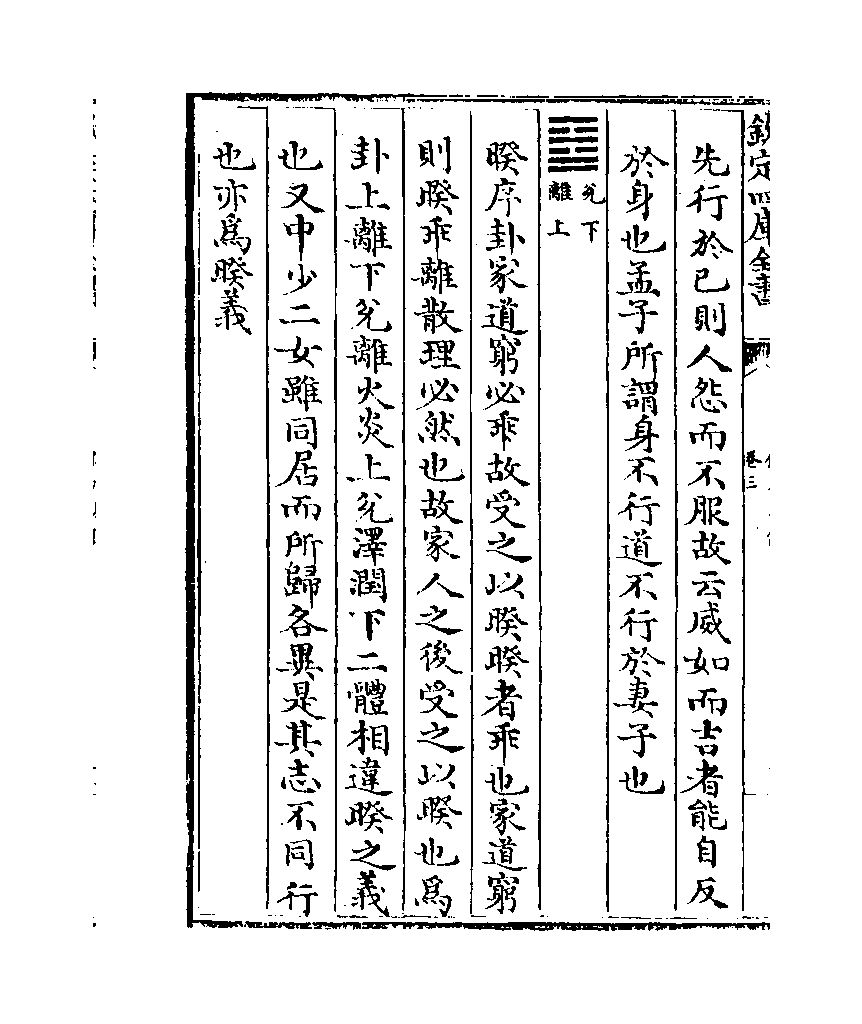 欽定四庫全書
卷三
先行於己則人怨而不服故云威如而吉者能自反
於身也孟子所謂身不行道不行於妻子也
䷥兊下離上
睽序卦家道窮必乖故受之以睽睽者乖也家道窮
則睽乖離散理必然也故家人之後受之以睽也爲
卦上離下兊離火炎上兊澤潤下二體相違睽之義
也又中少二女雖同居而所歸各異是其志不同行
也亦爲睽義